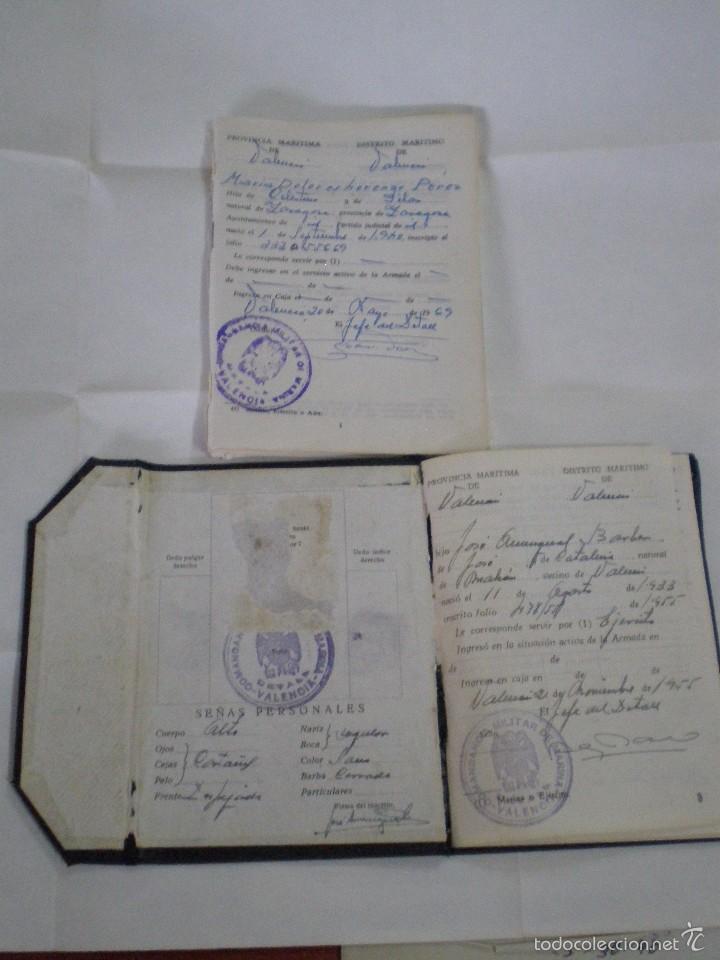 PROVINCIA MARITIMA DISTRITO MARITIMO
DE DE
Valencia Valencia
Maria Dolores Perez
Hijo de Celestino y de Pilar
natural de Zaragoza, provincia de Zaragoza
Ayuntamiento de Partido judicial de
nació el 1 de Septiembre de 1940, inscripto al
folio
Le corresponde servir por (1)
Debe ingresar en el servicio activo de la Armada el
de de
Ingresó en Caja el de de
Valencia 20 de Mayo de 1969
El Jefe del Detall
COMANDANCIA MILITAR DE MARINA
VALENCIA
(1) Marina, Ejército o Aire.
1
Dedo pulgar
derecho
Dedo índice
derecho
COMANDANCIA MARINA
DETALL
VALENCIA
SEÑAS PERSONALES
Cuerpo Alto Nariz } regular
Ojos Boca
Cejas } Castaño Color Sano
Pelo Barba Cerrada
Frente Despejada Particulares
Firma del inscrito
José
PROVINCIA MARITIMA DISTRITO MARITIMO
DE DE
Valencia Valencia
José y
hijo José y de Catalina natural
de Mahón vecino de Valencia
nació el 11 de Agosto de 1.933
inscrito folio 478/54 de 1.955
Le corresponde servir por (1) Ejército
Ingresó en la situación activa de la Armada en
de de
Ingresó en caja en de de
Valencia 2 de Noviembre de 1955
El Jefe del Detall
COMANDANCIA MILITAR DE MARINA
VALENCIA
(1) Marina o Ejército.
todocoleccion.net